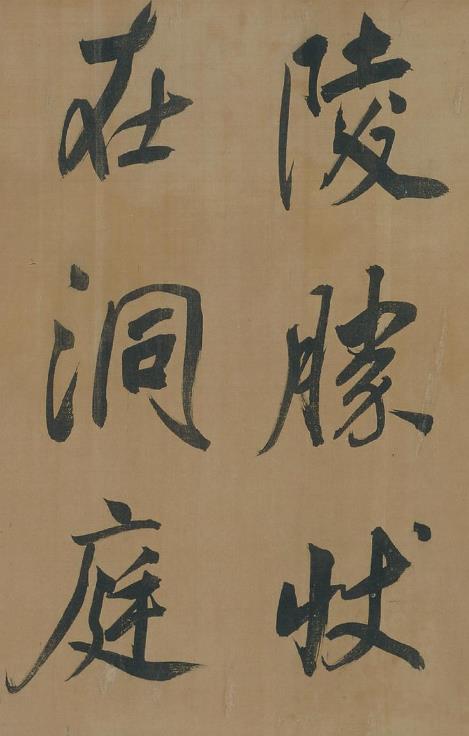 陵勝狀
在洞庭